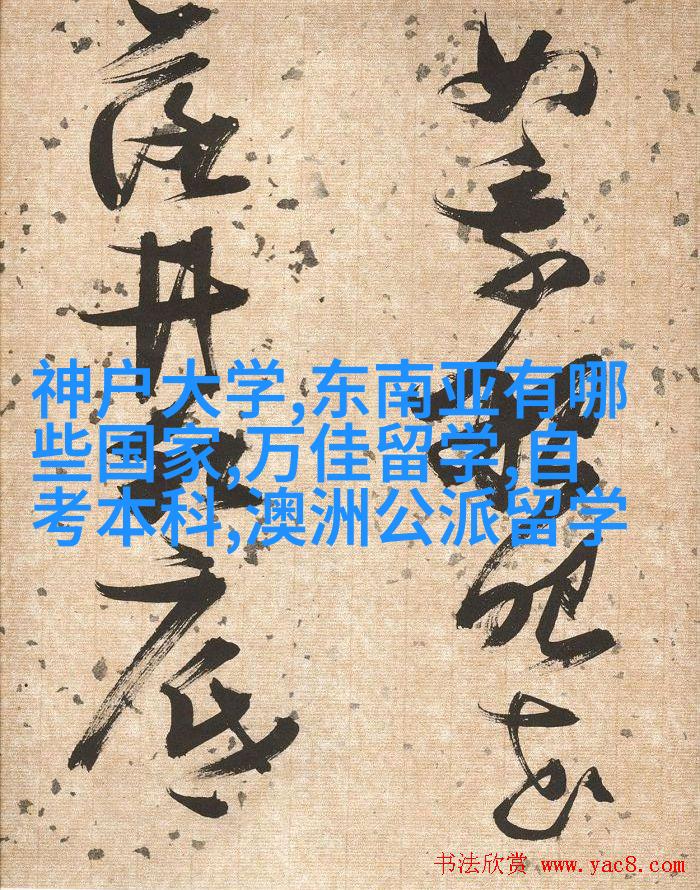 如
落井
底
神户大学,东南亚有哪
些国家,万佳留学,自
考本科,澳洲公派留学
书法欣赏 www.yac8.com